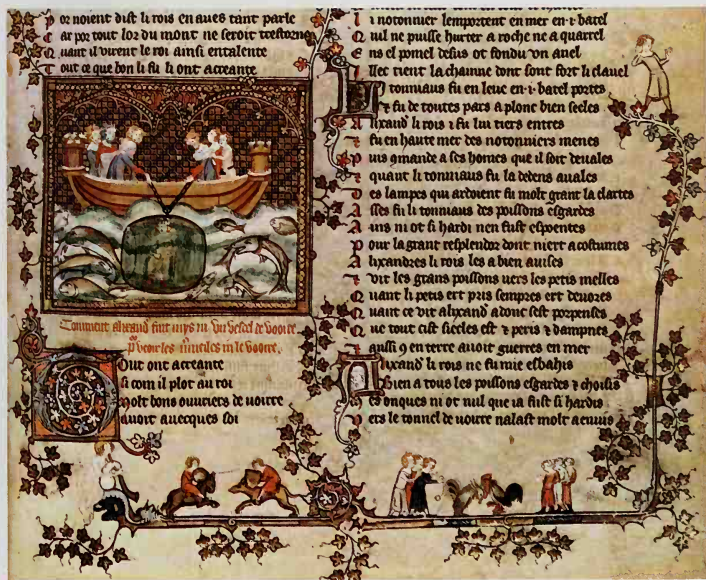 or noient dist li rois en aues tant parle
ar por tout lor du mont ne seroit trestorne
Quant il virent le roi ainsi entalente
Tout ce que bon li fu li ont acreante
Comment alixand fuit mys in vn vessel de voorre
pveoir les mueiles in le voorre
Out ont acreante
si com il plot au roi
molt bons ouuriers de uoirre
auoit auecques soi
notonnier lemportent en mer en .i. batel
Quil ne puisse hurter a roche ne a quarrel
Ens el pomel desus ot fondu vn anel
Illec tient la chaunne dont sont fort li clauel
tonniaus fu en leue en .i. batel portes
fu de toutes pars a plonc bien seeles
Alixand li rois i fu lui tiers entres
fu en haute mer des notonniers menes
Puis gmande a ses homes que il soit deuales
quant li tonniaus fu la dedens auales
Des lampes qui ardoient fu molt grant la clartes
Asses fu li tonniaus des poissons esgardes
Ains ni ot si hardi nen fust espoentes
Pour la grant resplendor dont niert acostumes
Alixandres li rois les a bien auises
vit les grans poissons uers les petis melles
Quant li petis ert pris sempres ert deuores
Quant ce vit alixand adonc sest porpenses
Que tout cist siecles est ⁊ peris ⁊ dampnes
aussi 9 en terre auoit guerres en mer
Alixand li rois ne fu mie esbahis
Bien a tous les poissons esgardes ⁊ choisis
es onques ni ot nul que ia fust si hardis
ers le tonnel de uoirre nalast molt a enuis